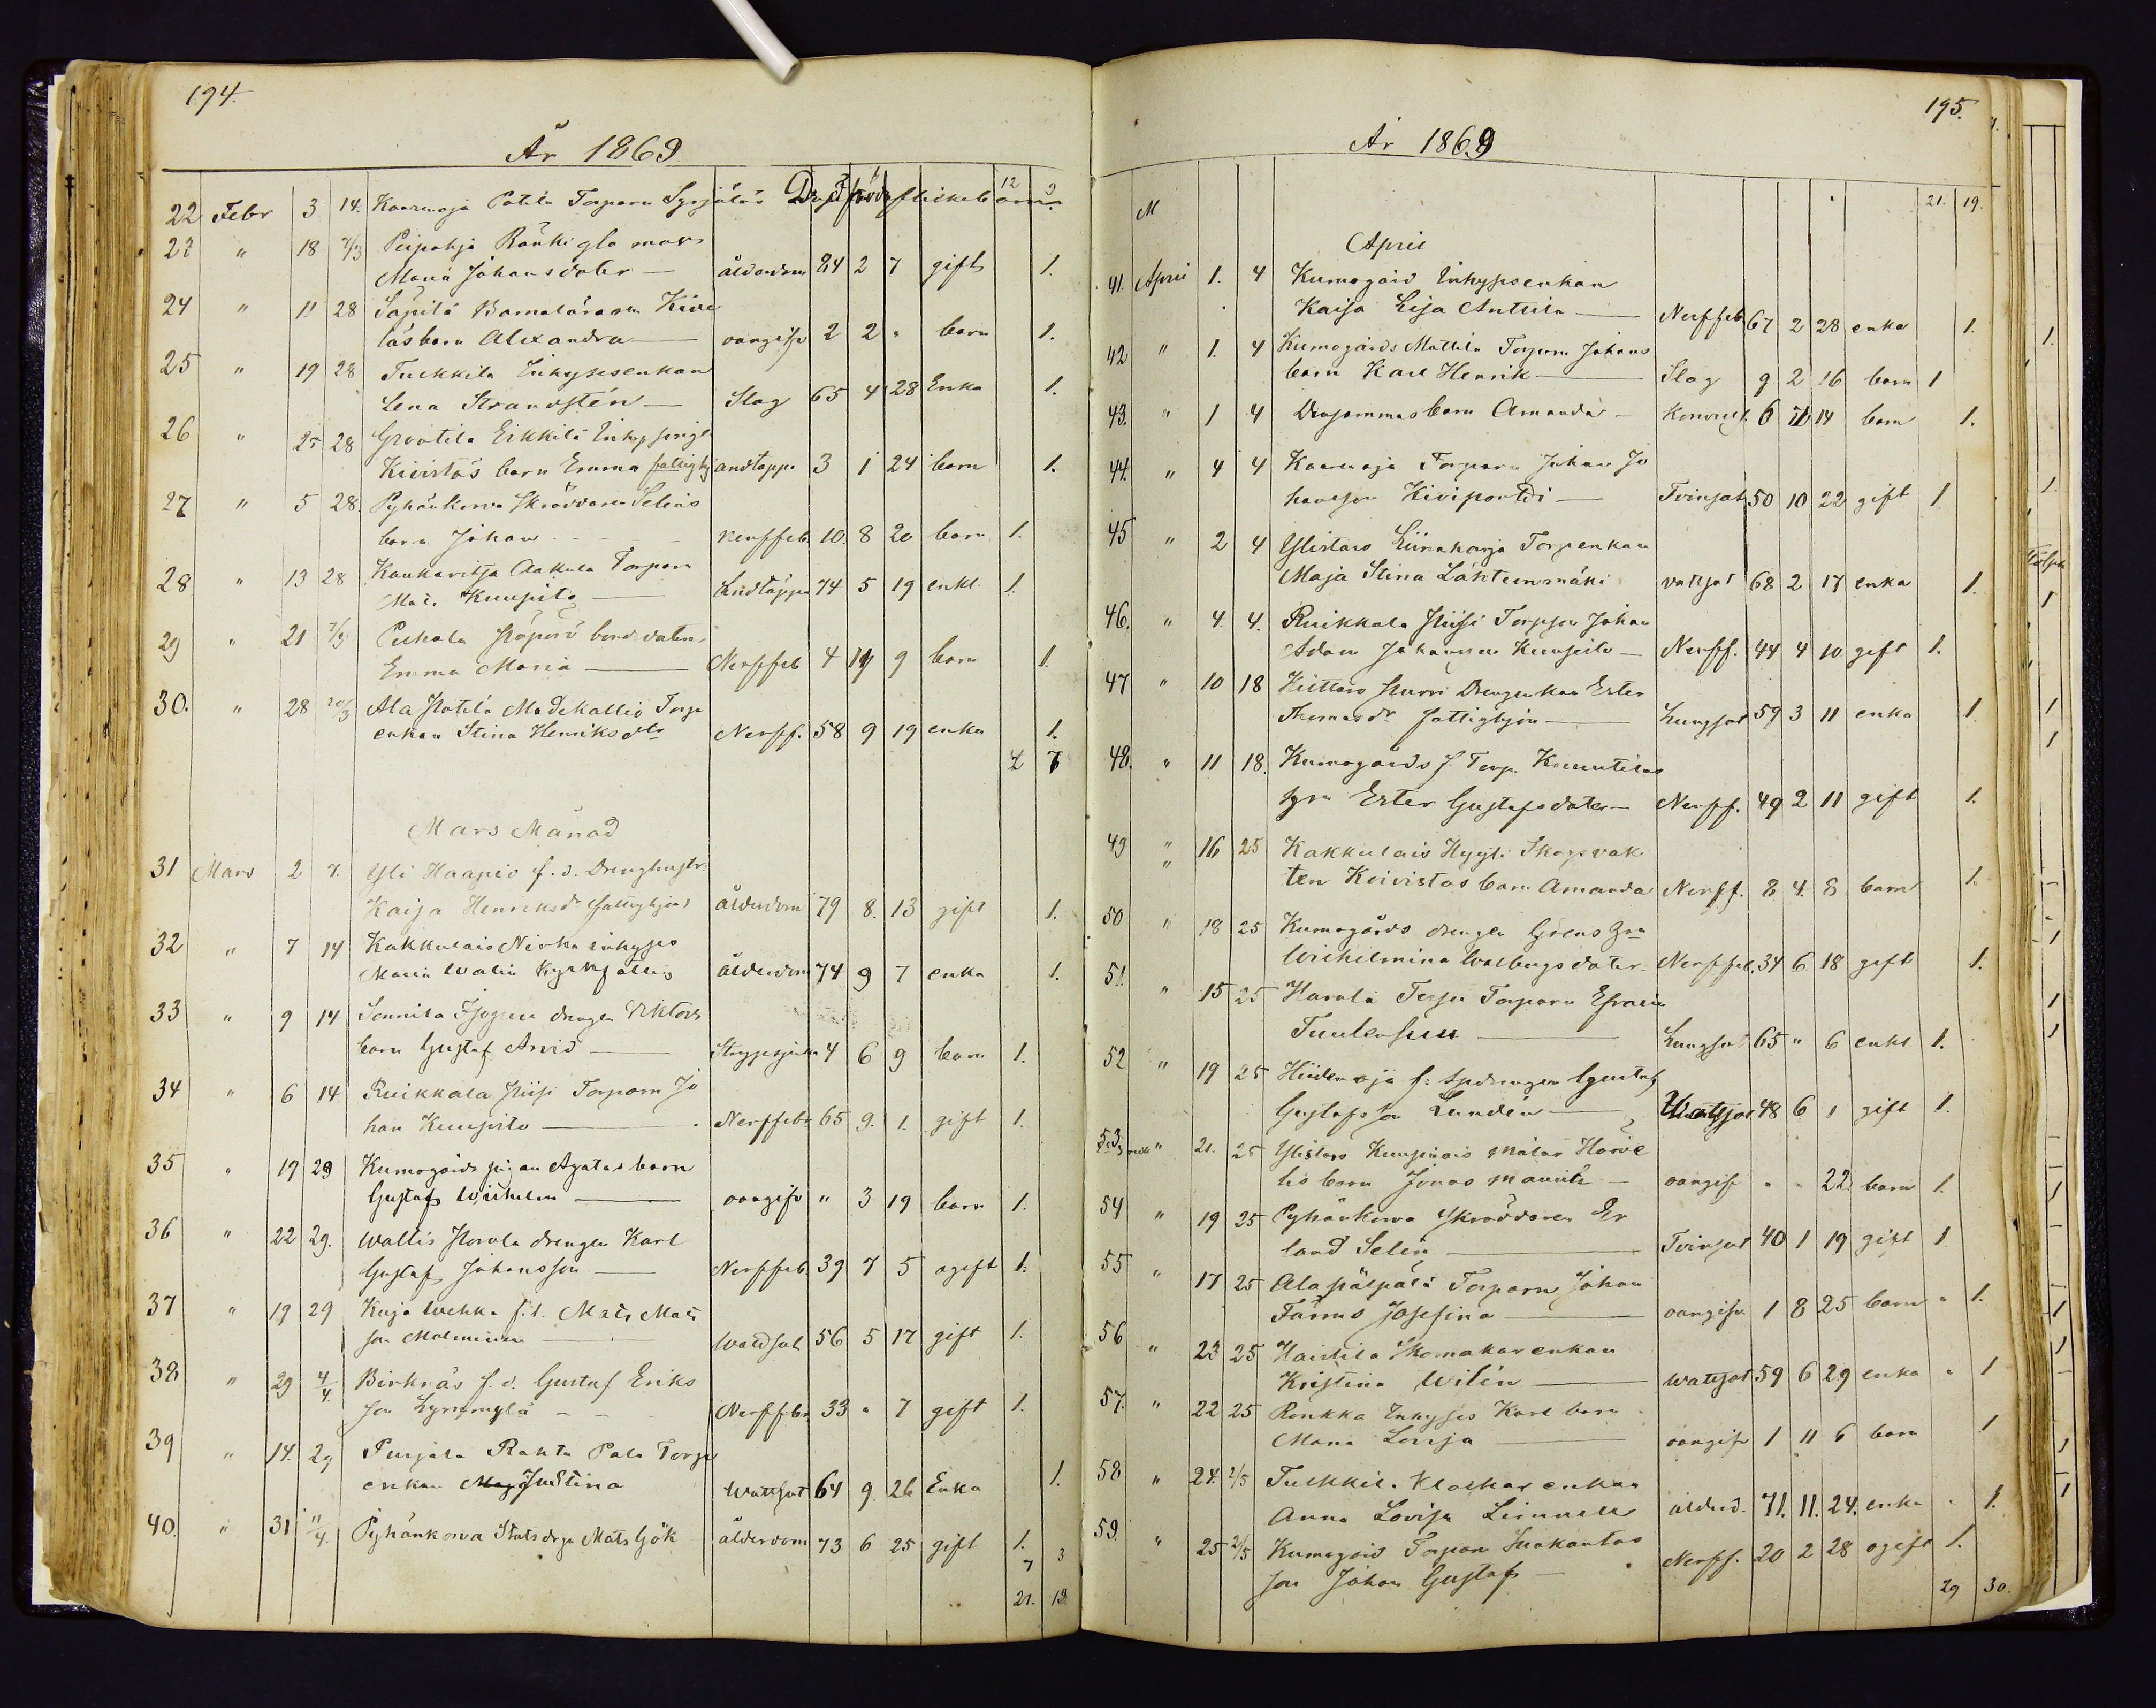 194.
År 1869
12 9
22 Febr 3 14. Kaarmoja Potila Torparn Syrjäläs Dödfödt flickebarn
23 " 18 7/3 Peipohja Ränki gla mors
Maria Johansdoter — ålderdom 84 2 7 gift 1.
24 " 11 28 Säpilä
läsbarn Alexandra — oangifv 2 2 " barn 1.
25 " 19 28 Tulkkila Inhysesenkan
Lena Strandstén — Slag 65 4 28 Enka 1.
26 " 25 28 Grootila Erkkilä
Kivistös barn Emma fattighj andtäppa 3 1 24 barn 1.
27 " 5 28. Pyhänkorva Skräddaren Selins
barn Johan - - - Nerffeb. 10. 8 20 barn 1.
28 " 13 28 Kaukaritsa Aakula Torparn
Mats Kuupito — Andtäppa 74 5 19 enkl. 1.
29 " 21 7/3 Puhala bond doter
Emma Maria — Nerffeb 4 9 barn 1.
30. " 28 20/3 Ala Potila Madekallio Torp
enkan Stina Henriksdtr Nerff. 58 9 19 enka 1.
2 7
Mars Månad
31 Mars 2 7. Yli Haapio f. d. Drenghustr
Kaisa Henriksdr fattighjon ålderdom 79 8. 13 gift 1.
32 " 7 14 Kakkulais Nirka inhyses
Maria Walin ålderdom 74 9 7 enka 1.
33 " 9 14 Sonnila drengen Viktors
barn Gustaf Arvid — Strypsjuka 4 6 9 barn 1.
34 " 6 14 Ruikkala Hiisi Torparn Jo
han Kuupito — Nerffebr 65 9. 1. gift 1.
35 " 19 29 Kumogårds pigan Agatas barn
Gustaf Wilhelm — oangifv " 3 19 barn 1.
36 " 22 29. Wallis Horola drengen Karl
Gustaf Johansson — Nerffeb. 39 7 5 ogift 1.
37 " 19 29 Kuja Wehka f.d. Mats Mats
son Malminen — Wattsot 56 5 17 gift 1.
38 " 29 4/4 Birknäs f. d. Gustaf Eriks
son Lynnmylä - - Nerffebr 33 " 7 gift 1.
39 " 14. 29 Purjala Rahta Pala Torp
enkan Maj Justina Wattsot 64 9. 26 Enka 1.
40. " 31 11/4. Pyhänkorva Statsdrgn Mats Gök ålderdom 73 6 25 gift 1.
7 3
21. 19
195.
År 1869
M 21. 19.
April
41. April 1. 4 Kumogård Inhysesenkan
Kaisa Lisa Anttila — Nerffeb 67 2 28 enka 1.
42 " 1. 4 Kumogårds Mattila Torparn Johans
barn Karl Henrik — Slag 9 2 16 barn 1
43. " 1 4 Densammas barn Amanda — Konvuls. 6 14 barn 1.
44. " 4 4 Kaarnoja Torparn Johan Jo
hansson Kiviportti — Tvinsot 50 10 22 gift 1.
45 " 2 4 Ylistaro Liinaharja Torpenkan
Maja Stina Lähteenmäki vattsot 68 2 17 enka 1.
46. " 4. 4. Ruikkala Hiisi Torpson Johan
Adam Johansson Kuupito — Nerff. 44 4 10 gift 1.
47 " 10 18 Kuttaro Hurri Drengenkan Ester
Thomasdr fattighjon — Lungsot 59 3 11 enka 1.
48. " 11 18. Kumogårds f. Torp. Kauutilas
hgn Ester Gustafsdoter — Nerff. 49 2 11 gift 1.
49 " 16 25 Kakkulais Hyyti Skogsvak
" ten Koivistos barn Amanda Nerff. 8 4. 8 barn 1.
50 " 18 25 Kumogårds drengen Grens
Wilhelmina Walbergsdoter. Nerffeb. 34 6 18 gift 1.
51. " 15 25 Harola Torparn Efraim
Tuulensuu — Lungsot 65 " 6 enkl 1.
52 " 19 25 Hiidenoja f. spdrengen Gustaf
Gustafsson Lundén — Wattsot 48 6 1 gift 1.
53, " 21. 25 Ylistaro Kuupinais målar Horve
lis barn Jonas Maurits — oangifv " " 22 barn 1.
54 " 19 25 Pyhänkorva Skräddaren Er
land Selin — Tvinsot 40 1 19 gift 1
55 " 17 25 Ala Torparn Johan
Fänns Josefina — oangifv. 1 8 25 barn " 1.
56 " 23 25 Haistila Skomakarenkan
Kristina Wilén — Wattsot 59 6 29 enka " 1
57. " 22 25 Ronkka Inhyses Karl barn
Maria Lovisa — oangifv 1 11 6 barn 1
58 " 24. 2/5 Tulkkil. Klockar enkan
Anna Lovisa Linnell ålderd. 71. 11. 24. enka " 1.
59. " 25 2/5 Kumogård Torparn Suokantas
son Johan Gustaf — Nerff. 20 2 28 ogift 1.
29 30.